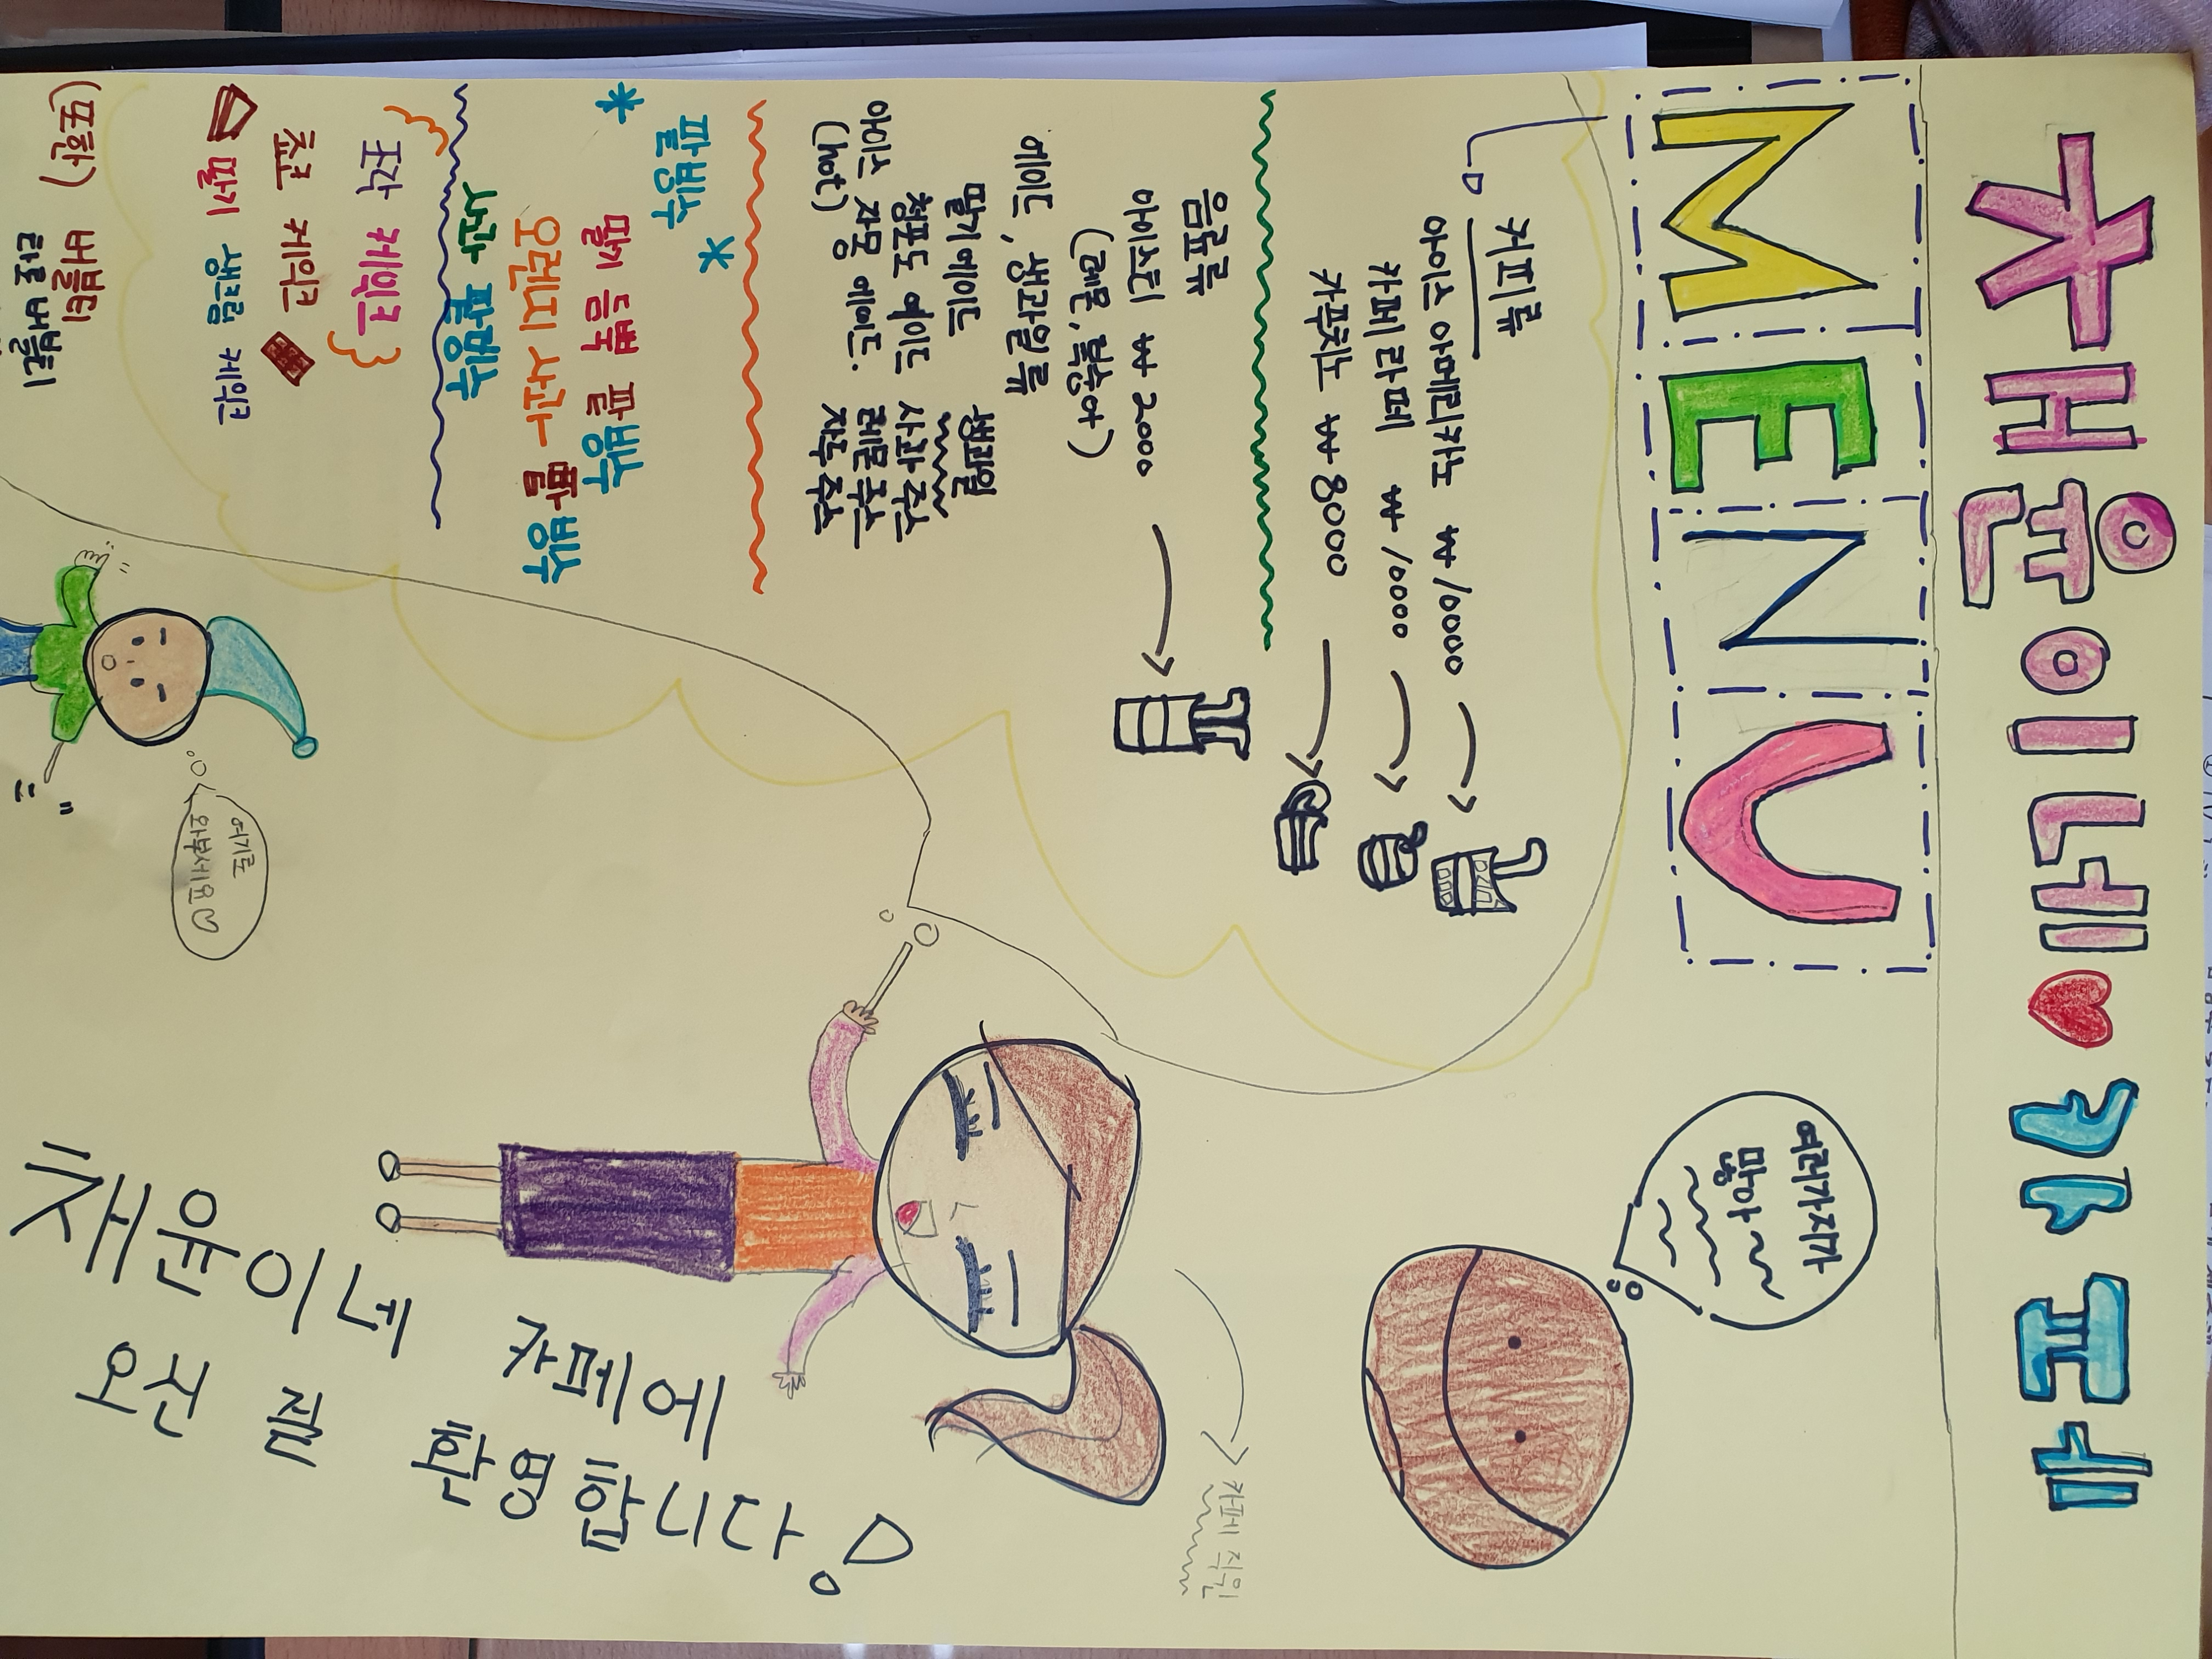 채윤이네♥카페
MENU
커피류
아이스 아메리카노 ₩10000
카페라떼 ₩10000
카푸치노 ₩8000
음료류
아이스티 ₩2000
(레몬, 복숭아)
에이드, 생과일류
딸기에이드
청포도 에이드
아이스 자몽 에이드.
(hot)
생과일
사과 주스
레몬 주스
자두 주스
팥빙수
딸기 듬뿍 팥빙수
오렌지 사과 팥빙수
사과 팥빙수
조각 케익크
쵸코 케익크
딸기 생크림 케익크
(또한) 버블티
타로 버블티
여러가지가
많아
카페 직원
여기로
와부세요♡
채윤이네 카페에
오신 걸 환영합니다!